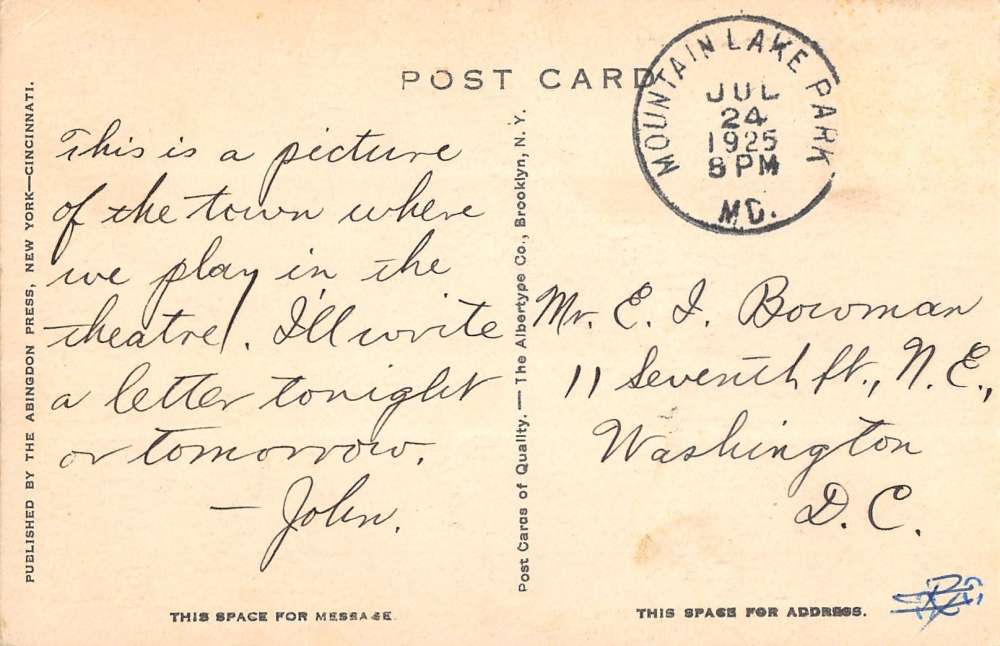 POST CARD
MOUNTAIN LAKE PARK
JUL
24
1925
8 PM
MD.
PUBLISHED BY THE ABINGDON PRESS, NEW YORK—CINCINNATI.
This is a picture
of the town where
we play in the
theatre. I'll write
a letter tonight
or tomorrow.
— John.
Post Cards of Quality. — The Albertype Co., Brooklyn, N. Y.
Mr. E. I. Bowman
11 Seventh St., N. E.,
Washington
D. C.
THIS SPACE FOR MESSAGE.
THIS SPACE FOR ADDRESS.